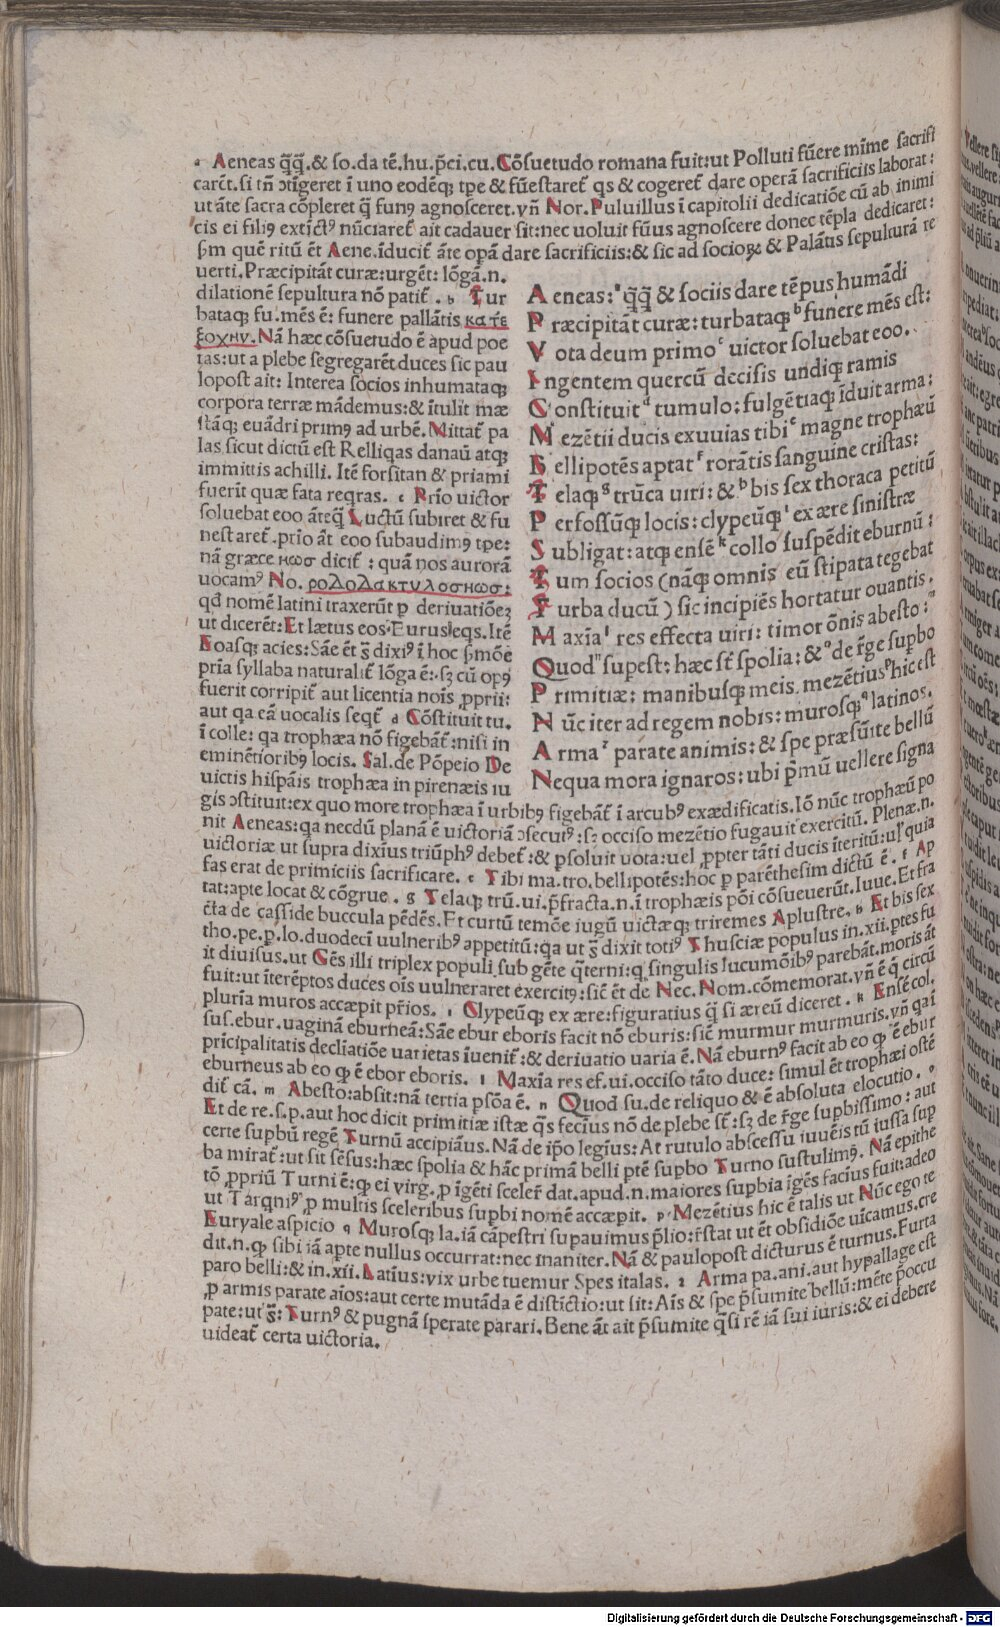 a Aeneas q̃q̃.& so.da tẽ.hu.p̃ci.cu. Cõsuetudo romana fuit:ut Polluti fũere mĩme sacrifi
carẽt.si tñ ↄtĩgeret ĩ uno eodẽq; tp̃e & fũestaret᷒ qs & cogeret᷒ dare operã sacrificiis laborat᷒:
ut ãte sacra cõpleret q̃ funꝰ agnosceret.vñ Nor. Puluillus ĩ capitolii dedicatiõe cũ ab inimi
cis ei filiꝰ extĩctꝰ nũciaret᷒ ait cadauer sit:nec uoluit fũus agnoscere donec tẽpla dedicaret:
ẜm quẽ ritũ ẽt Aene.ĩducit᷒ ãte opã dare sacrificiis:& sic ad socioꝝ & Palãtis sepulturã re
uerti. Præcipitãt curæ:urgẽt: lõgã.n.
dilationẽ sepultura nõ patit᷒ . b Tur
bataq; fu.mẽs ẽ: funere pallãtis κατε
ξοχην. Nã hæc cõsuetudo ẽ apud poe
tas:ut a plebe segregarẽt duces sic pau
lopost ait: Interea socios inhumataq;
corpora terræ mãdemus:& ĩtulit mæ
stãq; euãdri primꝰ ad urbẽ. Mittat᷒ pa
las sicut dictũ est Relliqas danaũ atq;
immittis achilli. Itẽ forsitan & priami
fuerĩt quæ fata reqras. c Prĩo uictor
soluebat eoo ãteq̃ Luctũ subiret & fu
nestaret᷒.prĩo ãt eoo subaudimꝰ tp̃e:
nã græce ηωσ dicit᷒ : quã nos aurorã
uocamꝰ No. ροδοδακτυλοσηωσ:
qđ nomẽ latini traxerũt p deriuatiõez
ut dicerẽt: Et lætus eos. Eurus eqs. Itẽ
Eoasq; acies: Sãe ẽt s̃ dixiꝰ ĩ hoc ẜmõe
prĩa syllaba naturalit᷒ lõga ẽ:sꝫ cũ opꝰ
fuerit corripit᷒ aut licentia noĩs ꝓprii:
aut qa eã uocalis seqt᷒ d Cõstituit tu.
ĩ colle: qa trophæa nõ figebãt᷒:nisi in
eminẽtioribꝰ locis. Sal.de Põpeio De
uictis hispãis trophæa in pirenæis iu
A eneas:a q̃q̃ & sociis dare tẽpus humãdi
P ræcipitãt curæ: turbataq; b funere mẽs est:
V ota deum primo c uictor soluebat eoo.
I ngentem quercũ decisis undiq; ramis
C onstituit d tumulo: fulgẽtiaq; ĩduit arma:
M ezẽtii ducis exuuias tibi e magne trophæũ
B ellipotẽs aptat f rorãtis sanguine cristas:
T elaq; g trũca uiri: & h bis sex thoraca petitũ
P erfossũq; locis: clypeũq; i ex ære sinistræ
S ubligat: atq; ensẽ k collo suspẽdit eburnũ:
T um socios (nãq; omnis eũ stipata tegebat
T urba ducũ) sic incipiẽs hortatur ouantis.
M axĩa l res effecta uiri: timor õnis abesto: m
Quod n supest: hæc st̃ spolia: & o de r̃ge supbo
P rimitiæ: manibusq; meis. mezẽtius p hic est
N ũc iter ad regem nobis: murosq; q latinos.
A rma r parate animis: & spe præsũite bellũ
N equa mora ignaros: ubi p̃mũ uellere signa
gis ↄstituit:ex quo more trophæa ĩ urbibꝰ figebãt᷒ ĩ arcubꝰ exædificatis. Iõ nũc trophæũ po
nit Aeneas:qa necdũ planã ẽ uictoriã ↄsecutꝰ:sꝫ occiso mezẽtio fugauit exercitũ. Plenæ.n.
uictoriæ ut supra dixĩus triũphꝰ debet᷒:& psoluit uota:uel ꝓpter tãti ducis ĩteritũ:ul᷒ quia
fas erat de primiciis sacrificare. e Tibi ma.tro.bellipotẽs:hoc p parẽthesim dictũ ẽ. f Ap
tat:apte locat & cõgrue. g Telaq; trũ.ui.p̃fracta.n.ĩ trophæis põi cõsueuerũt. Iuue. Et fra
c̃ta de casside buccula pẽdẽs. Et curtũ temõe iugũ uictæq; triremes Aplustre. h Et bis sex
tho.pe.p.lo.duodecĩ uulneribꝰ appetitũ:qa ut s̃ dixit totiꝰ Thusciæ populus in.xii.ptes fu
it diuisus.ut Gẽs illi triplex populi sub gẽte q̃terni:q singulis lucumõibꝰ parebãt.moris ãt
fuit:ut ĩterẽptos duces oĩs uulneraret exercitꝰ:sic̃ ẽt de Nec. Nom.cõmemorat.vñ ẽ q̃ circũ
pluria muros accæpit pr̃ios. i Clypeũq; ex ære:figuratius q̃ si æreũ diceret . k Ensẽ col.
sus.ebur.uaginã eburneã: Sãe ebur eboris facit nõ eburis:sic̃ murmur murmuris.vñ qaĩ
pricipalitatis decliatiõe uarietas ĩuenit᷒:& deriuatio uaria ẽ. Nã eburnꝰ facit ab eo qͥ ẽ ebur
eburneus ab eo qͥ ẽ ebor eboris. l Maxĩa res ef.ui.occiso tãto duce: simul ẽt trophæi ostẽ
dit᷒ cã. m Abesto:absit:nã tertia psõa ẽ. n Quod su.de reliquo & ẽ absoluta elocutio. o
Et de re.s.p.aut hoc dicit primitiæ istæ q̃s fecĩus nõ de plebe st̃:sꝫ de r̃ge supbissimo: aut
certe supbũ regẽ Turnũ accipiãus. Nã de ip̃o legĩus: At rutulo abscessu iuuẽis tũ iussa sup
ba mirat᷒:ut sit sẽsus:hæc spolia & hãc primã belli ptẽ supbo Turno sustulimꝰ. Nã epithe
tõ ꝓpriũ Turni ẽ:qͥ ei virg.p ĩgẽti sceler̃ dat.apud.n.maiores supbia ĩgẽs facĩus fuit:adeo
ut Tarqniꝰ p multis sceleribus supbi nomẽ accæpit. p Mezẽtius hic ẽ talis ut Nũc ego te
Euryale aspicio q Murosq; la.iã cãpestri supauimus p̃lio:r̃stat ut ẽt obsidiõe uĩcamus.cre
dit.n.qͥ sibi iã apte nullus occurrat:nec inaniter. Nã & paulopost dicturus ẽ turnus. Furta
paro belli:& in.xii. Latĩus:vix urbe tuemur Spes italas. r Arma pa.ani.aut hypallage est
ꝓ armis parate aĩos:aut certe mutãda ẽ distĩctio:ut sit: Aĩs & spe p̃sumite bellũ:mẽte p̃occu
pate:ut s̃: Turnꝰ & pugnã sperate parari. Bene ãt ait p̃sumite q̃si rẽ iã sui iuris:& ei debere
uideat᷒ certa uictoria.
Digitalisierung gefördert durch die Deutsche Forschungsgemeinschaft - DFG